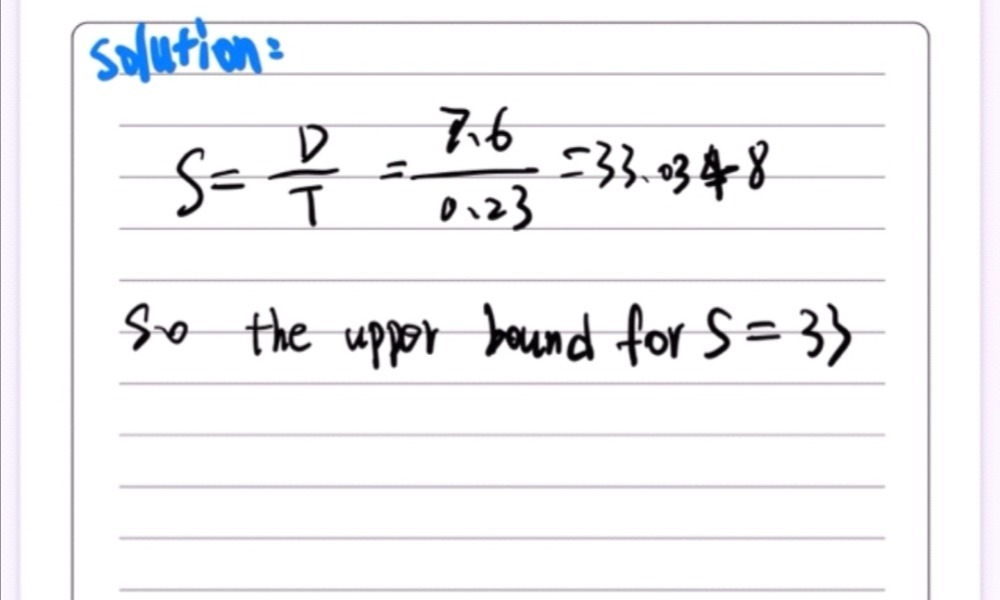 Solution:
S = D/T = 7.6/0.23 = 33.0348
So the upper bound for S = 33